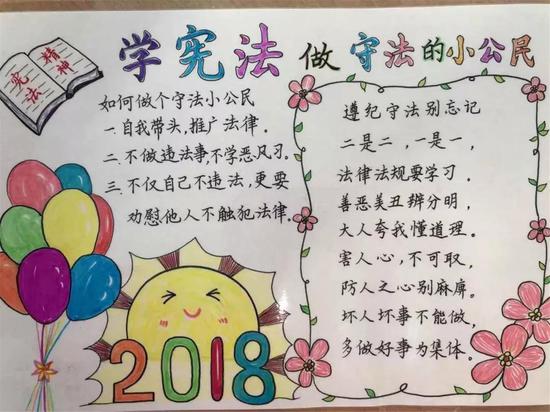 宪法
精神
学宪法 做守法的小公民
如何做个守法小公民
一.自我带头,推广法律。
二.不做违法事,不学恶风习。
三.不仅自己不违法,更要
劝慰他人不触犯法律。
2018
遵纪守法别忘记
二是二,一是一,
法律法规要学习.
善恶美丑辨分明,
大人夸我懂道理。
害人心,不可取,
防人之心别麻痹。
坏人坏事不能做,
多做好事为集体。